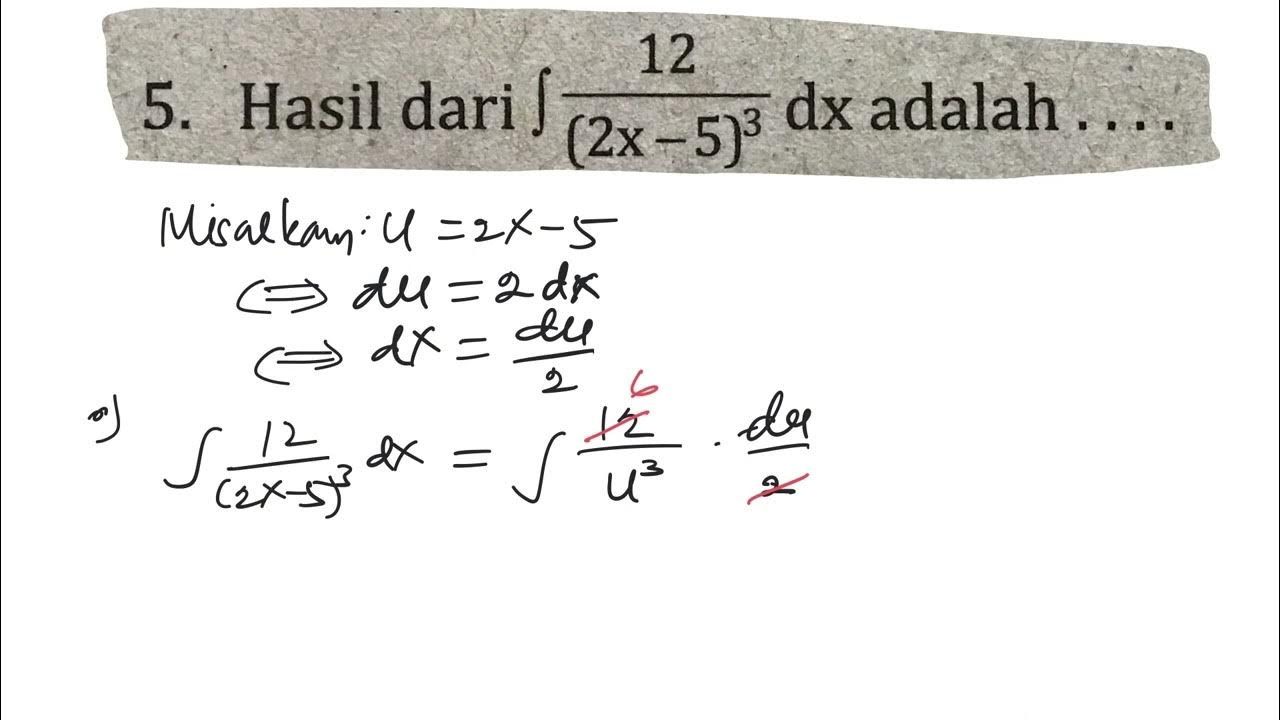 5. Hasil dari ∫ 12/(2x – 5)³ dx adalah . . . .
Misalkan: u = 2x – 5
⟺ du = 2 dx
⟺ dx = du/2
∫ 12/(2x–5)³ dx = ∫ 12/u³ · du/2
6